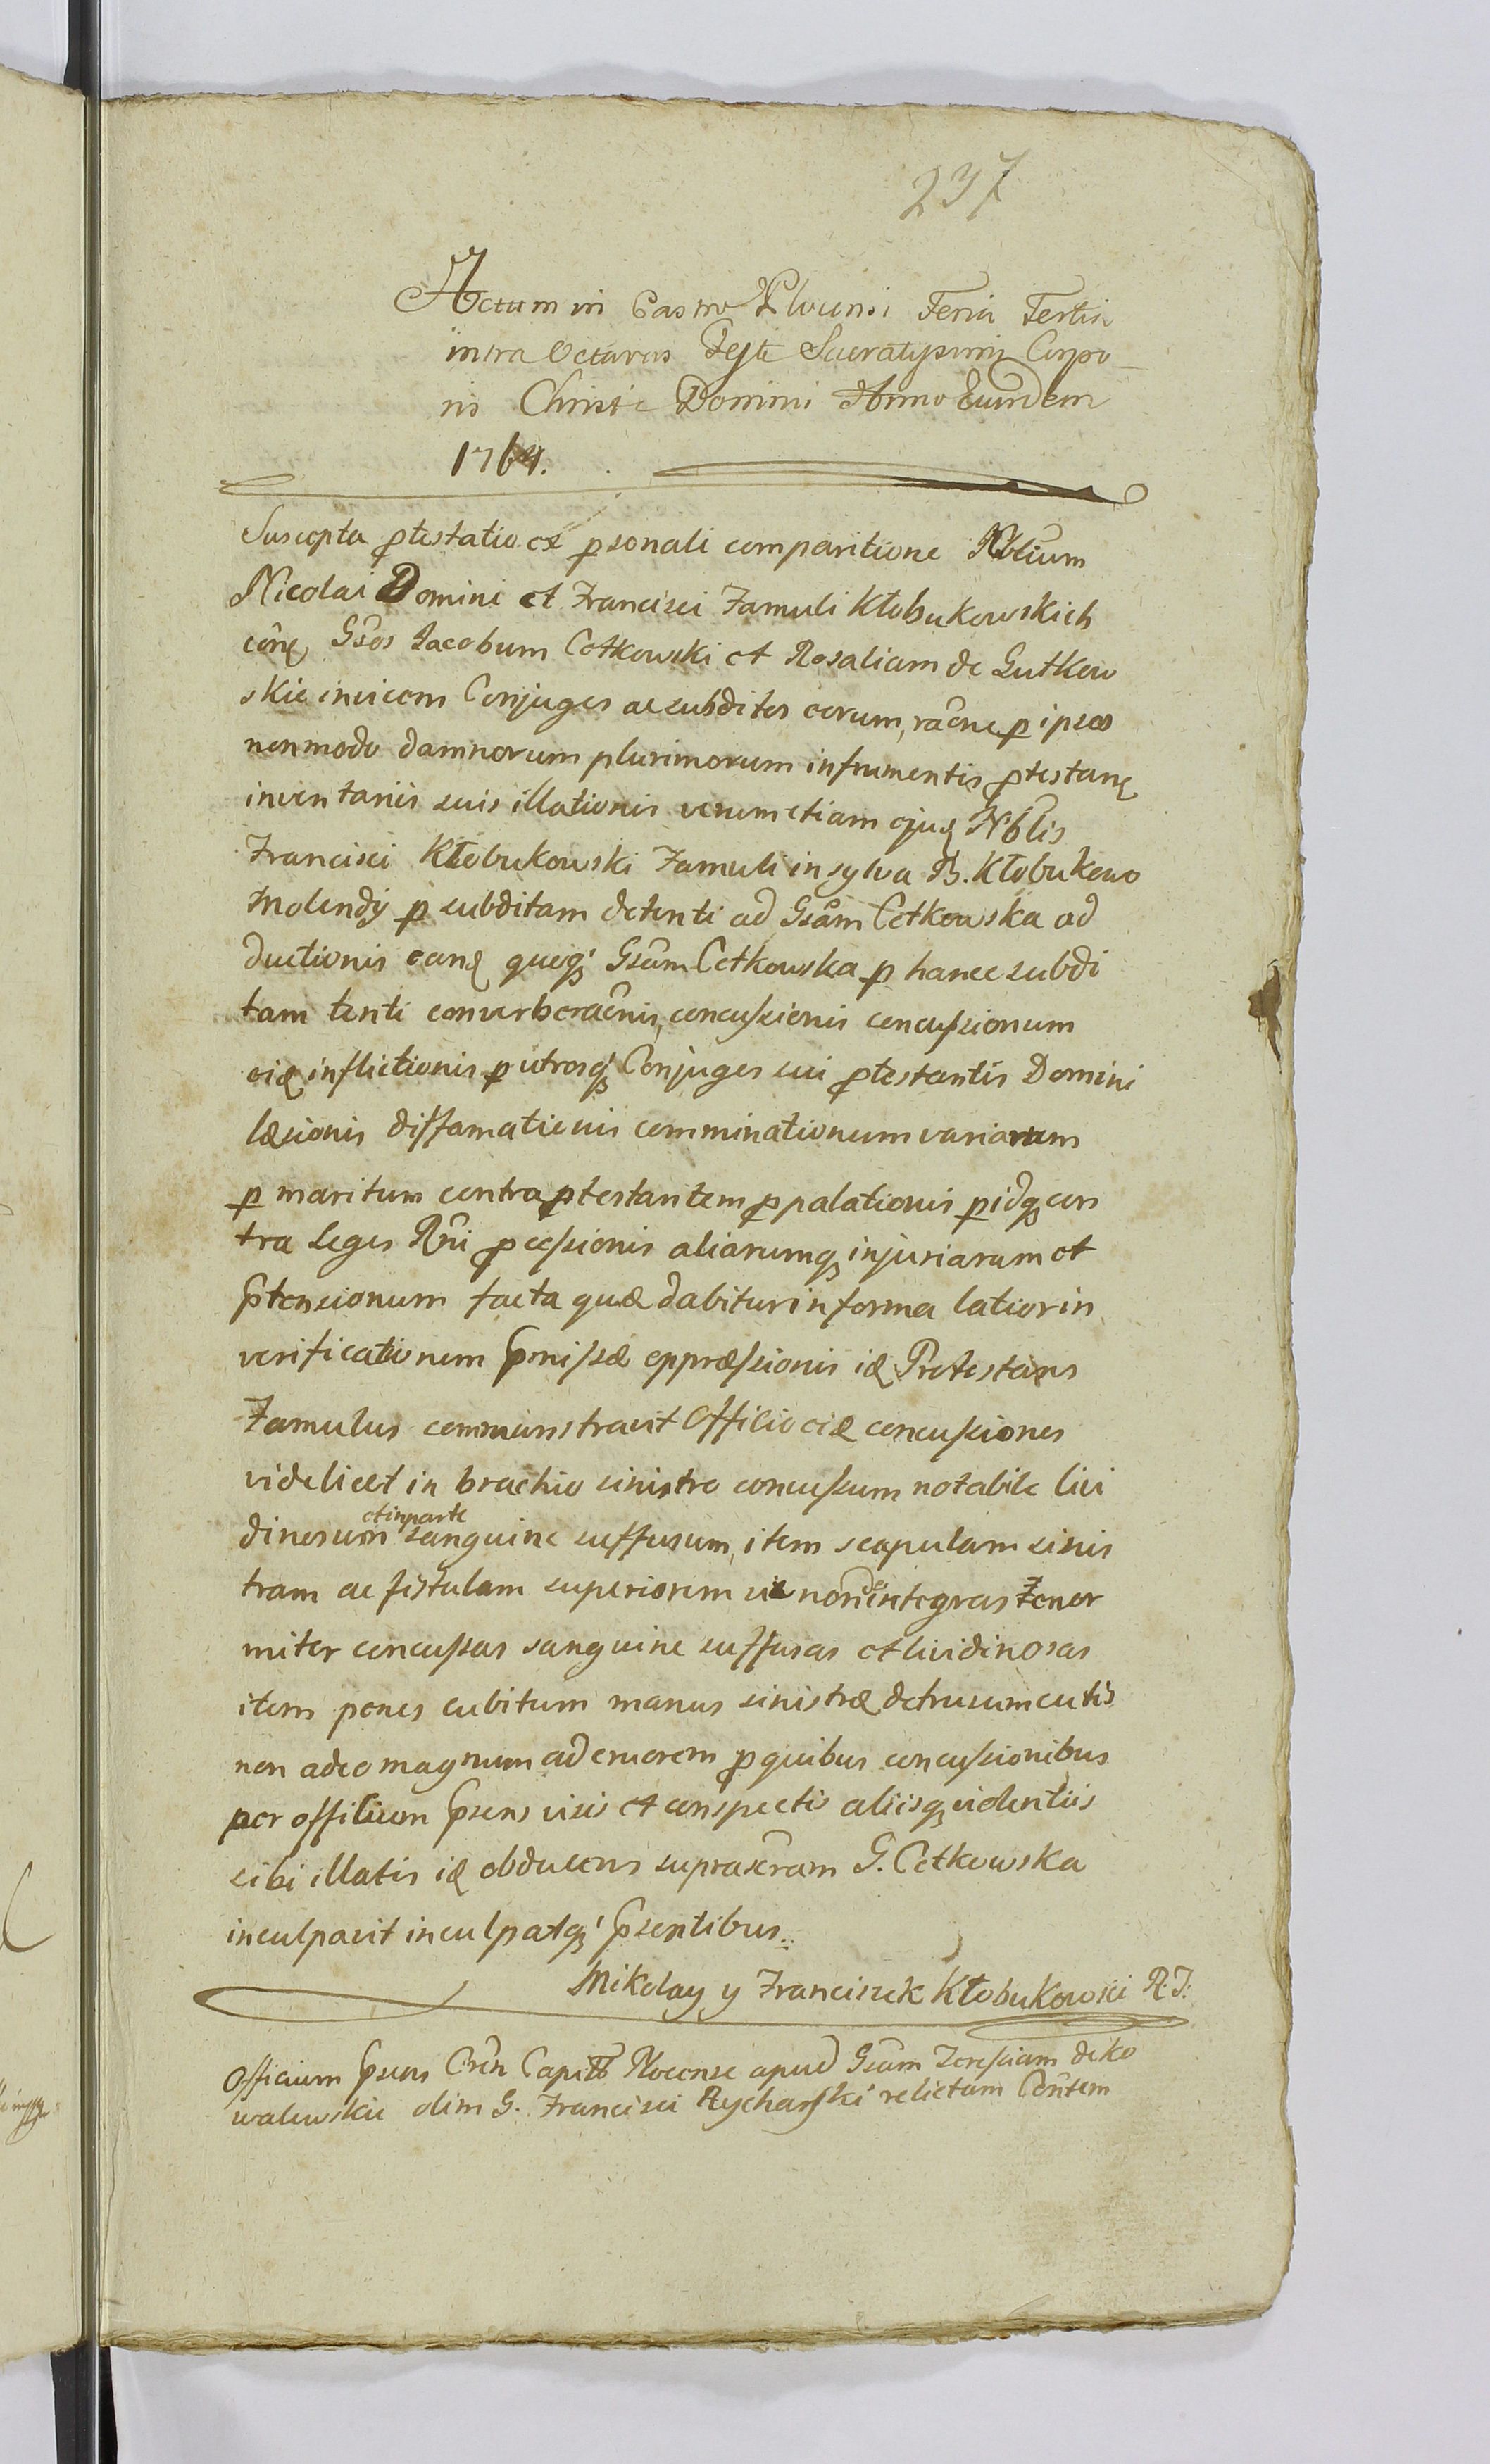 237
Actum in Castro Plocensi Feria Tertia
intra Octavas Festi Sacratissimi Corpo_
ris Christi Domini Anno Eundem
1764.
Suscepta ptestatio ex psonali comparitione Nblium
Nicolai Domini et Francisci Famuli Kłobukowskich
con Gsos Jacobum Cetkowski et Rosaliam de Gutkow
skie invicem Conjuges ac subditos eorum, raone p ipsos
nonmodo damnorum plurimorum infrumentis ptestanę
inventariis suis illationis verumetiam ejusę Nblis
Francisci Kłobukowski Famuli in sylva B. Kłobukowo
Molendÿ p subditam detenti ad Gsam Cetkowska ad
ductionis eanę queq; Gsam Cetkowska p hance subdi
tam tenti conuerberaonis, concussionis concussionum
eię inflictionis p utrosq; Conjuges sui ptestantis Domini
læsionis diffamationis comminationum variarum
p maritum contra ptestantem ppalationis pidq; con
tra Leges Rni pcessionis aliarumq; injuriarum et
Ptensionum facta quæ dabitur in forma latior in
verificationem Pmissæ oppræssionis idę Protestans
Famulus commonstravit Officio eię concussiones
videlicet in brachio sinistro concussum notabile livi
dinosum et in parte sanguine suffusum, item scapulam sinis
tram ac fistulam superiorem integras Fenor
miter concussas sanguine suffusas et lividinosas
item penes cubitum manus sinistræ detrusum cutis
non adeo magnum ad cruorem p quibus concussionibus
per officium Psens visis et conspectis aliisq; violentiis
sibi illatis idę obducens suprascram G. Cetkowska
inculpavit inculpatq; Psentibus.
Mikolay y Franciszek Kłobukowski R. J:
Officium Psens Cren Capitt Plocense apud Gsam Teressiam de Ko
walewskie olim G. Francisci Rycharski relictam Contem